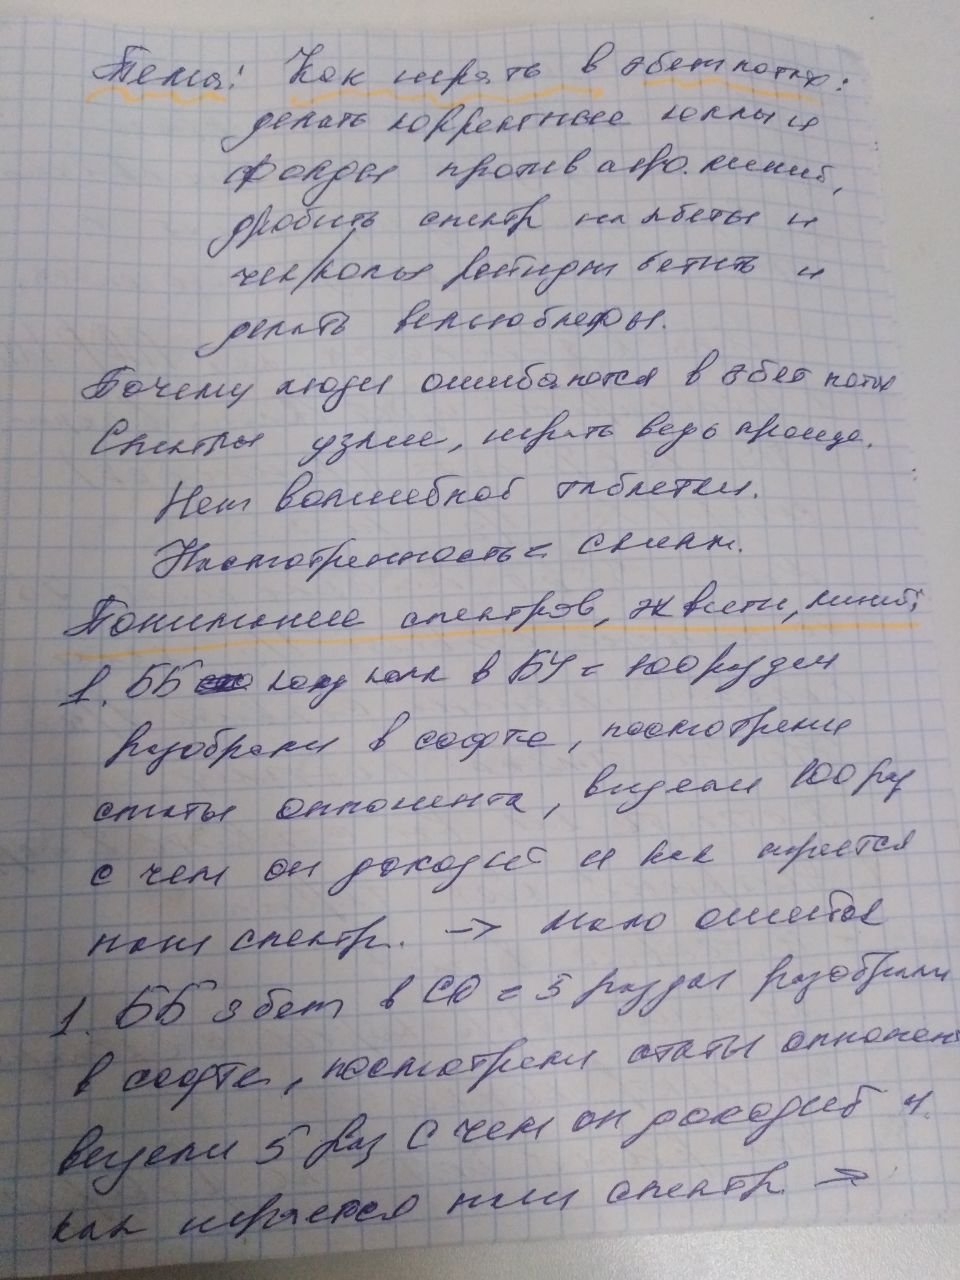 Тема: Как играть в 3бет потах:
делать корректные коллы и
фолды против агро. линий,
дробить спектр на беты и
чек/коллы рейндж бетить и
делать велью блефы.
Почему люди ошибаются в 3бет потах
Спектры узкие, играть ведь проще.
Нет волшебной таблетки.
Насмотренность = скилл.
Понимание спектров, эквити, линий:
1. ББ колд колл в БУ = 100 раздач
разобрали в софте, посмотрели
статы оппонента, видели 100 раз
с чем он доходит и как играется
наш спектр. → мало ошибок
1. ББ 3бет в СО = 5 раздач разобрали
в софте, посмотрели статы оппонент
видели 5 раз с чем он доходит и
как играется наш спектр →